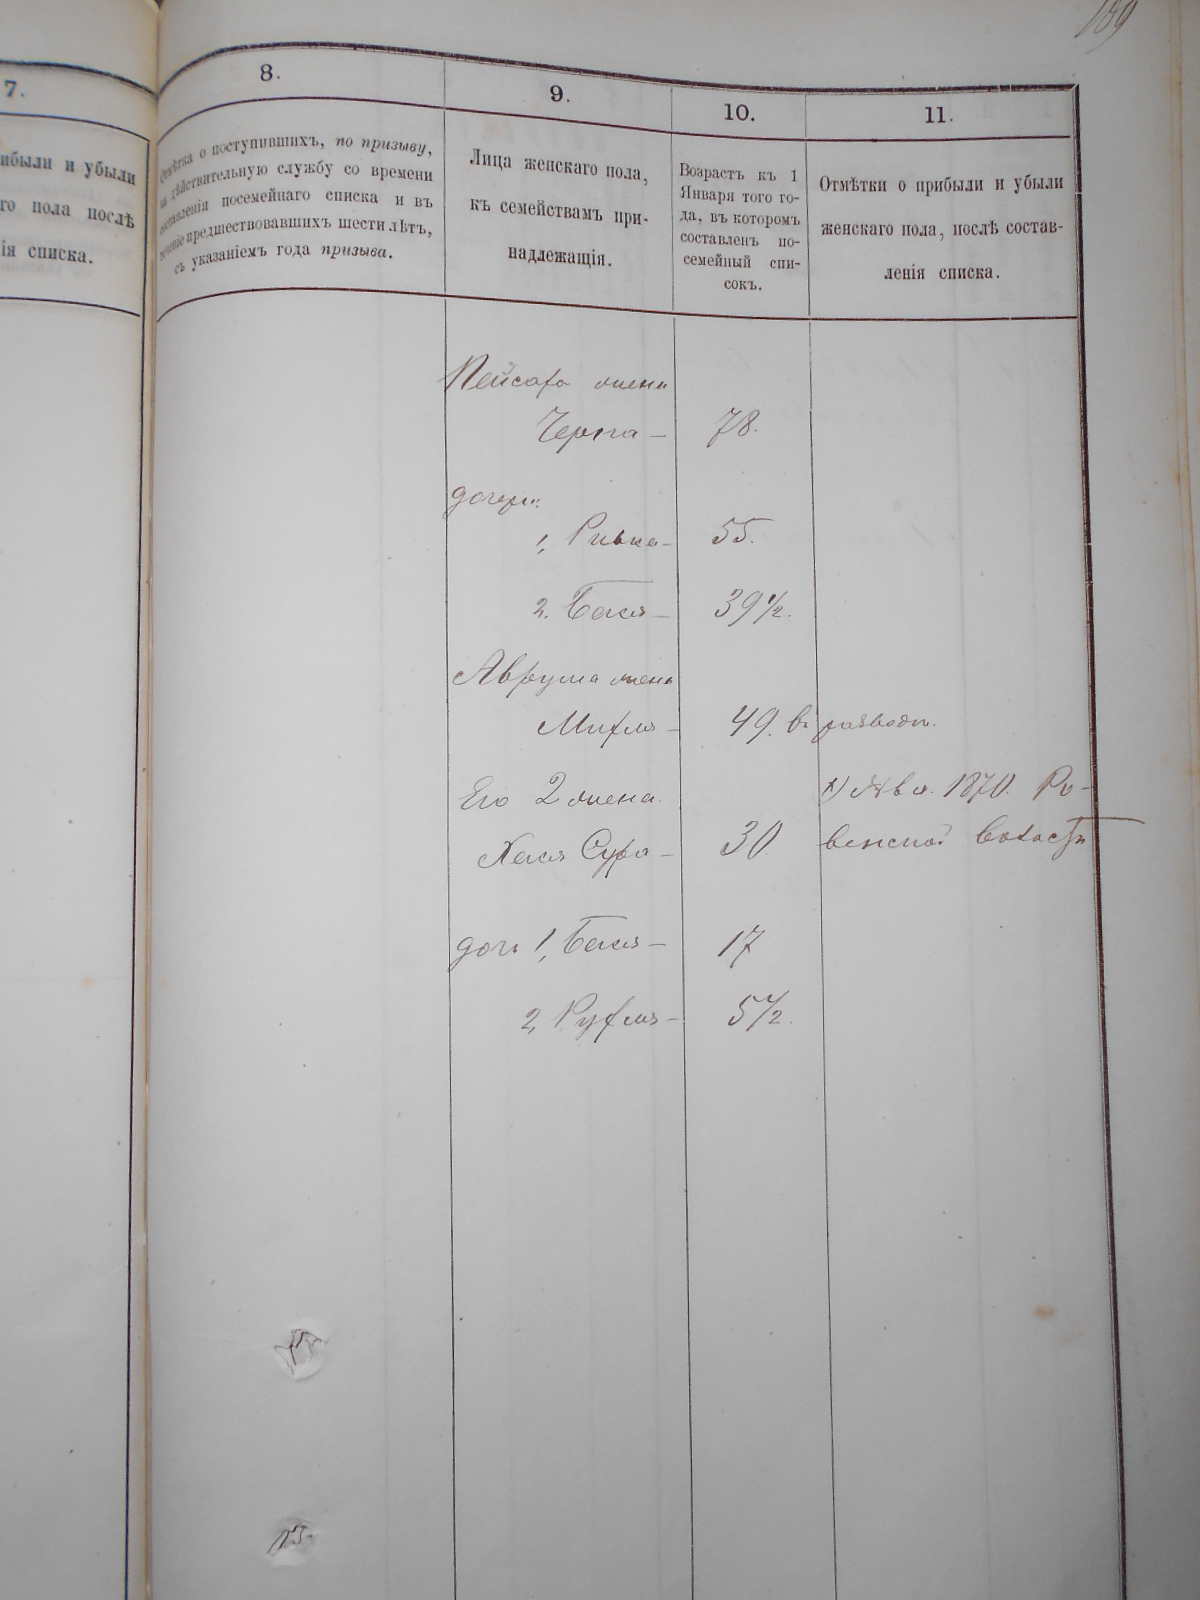 189
7.
ибыли и убыли
го пола послѣ
ія списка.
8.
Отмѣтка о поступившихъ, по призыву,
на дѣйствительную службу со времени
составленія посемейнаго списка и въ
теченіе предшествовавшихъ шести лѣтъ,
съ указаніемъ года призыва.
9.
Лица женскаго пола,
къ семействамъ при-
надлежащія.
10.
Возрастъ къ 1
Января того го-
да, въ которомъ
составленъ по-
семейный спи-
сокъ.
11.
Отмѣтки о прибыли и убыли
женскаго пола, послѣ состав-
ленія списка.
Пейсаха жена
Черна — 78.
дочери:
1, Ривка — 55.
2. Бася — 39½.
Аврума жена
49. въ разводѣ.
Его 2 жена
Хася Сура — 30
1870. Ро-
венской
доч 1, Бася — 17
2, Рухля — 5½.